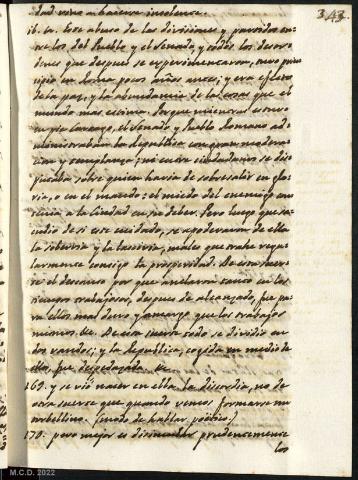 343.
dad vino a hacerse insolente.
ib. Este abuso de las divisiones y partidos en-
tre los del Pueblo y el Senado, y todos los desor-
denes que despues se experimentaron, tuvo prin-
cipio en Roma pocos años antes; y era efecto
de la paz, y la abundancia de las cosas que el
mundo mas estima. Porque mientras estuvo
en pie Cartago, el Senado y Pueblo Romano ad-
ministraban la Republica con gran modera-
cion y templanza; ni entre ciudadanos se dis-
putaba sobre quien havia de sobresalir en glo-
ria, o en el mando: el miedo del enemigo con-
tenia a la Ciudad en su deber. Pero luego que sa-
cudio de si este cuidado, se apoderaron de ella
la soberbia y la lascivia, males que trahe regu-
larmente consigo la prosperidad. De esta suer-
te el descanso por que anelaron tanto en los
tiempos trabajosos, despues de alcanzado, fue pa-
ra ellos mas duro y amargo que los trabajos
mismos. &c. De esta suerte todo se dividio en
dos vandos; y la Republica, cogida en medio de
ellos, fue despedazada. &c.
169. y se vio nacer en ella la discordia, no de
otra suerte que quando vemos formarse un
torbellino. (modo de hablar poëtico.)
170. pero mejor es disimular prudentemente
los
M.C.D. 2022